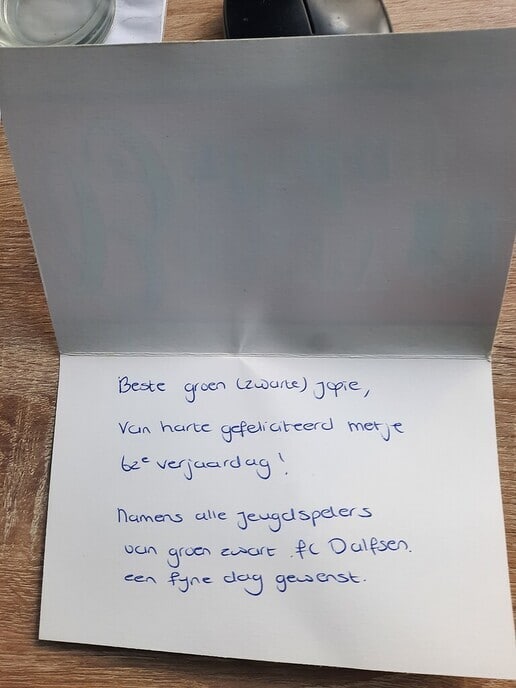 Beste groen (zwarte) jopie,
Van harte gefeliciteerd met je
62e verjaardag!
Namens alle jeugdspelers
van groen zwart fc Dalfsen.
een fyne dag gewenst.